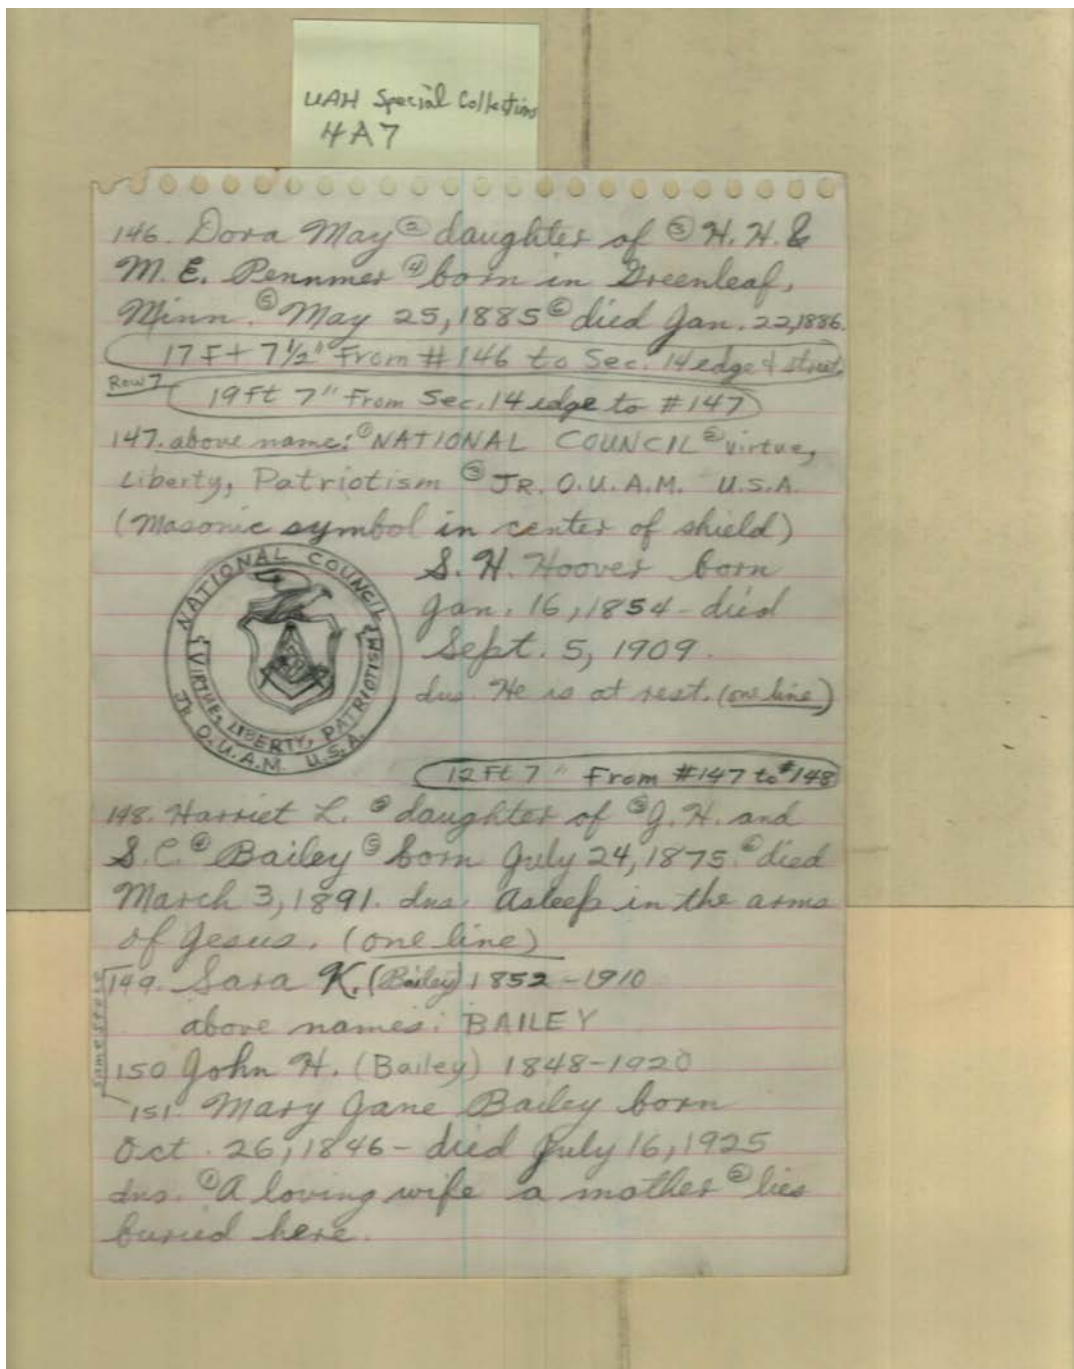 UAH Special Collections
4A7
146. Dora May ② daughter of ③ H. H. &
M. E. Pennmer ④ born in Greenleaf,
Minn. ⑤ May 25, 1885 ⑥ died Jan. 22, 1886.
17 Ft 7½" From #146 to Sec. 14 edge & street.
Row 7
19 ft 7" From Sec. 14 edge to #147
147. above name: ① NATIONAL COUNCIL ② virtue,
Liberty, Patriotism ③ JR. O.U.A.M. U.S.A.
(Masonic symbol in center of shield)
NATIONAL COUNCIL
VIRTUE, LIBERTY, PATRIOTISM
JR. O.U.A.M. U.S.A.
S. H. Hoover born
Jan. 16, 1854 - died
Sept. 5, 1909.
dns. He is at rest. (one line)
12 Ft 7" From #147 to #148
148. Harriet L. ② daughter of ③ J. H. and
S. C. ④ Bailey ⑤ born July 24, 1875. ⑥ died
March 3, 1891. dns. Asleep in the arms
of Jesus. (one line)
same stone
149. Sara K. (Bailey) 1852 - 1910
above names: BAILEY
150 John H. (Bailey) 1848-1920
151. Mary Jane Bailey born
Oct. 26, 1846 - died July 16, 1925
dns. ① A loving wife a mother ② lies
buried here.